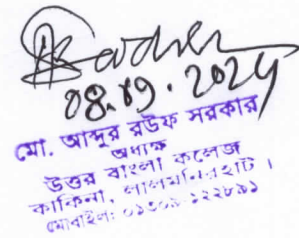 08.09.2024
মো. আব্দুর রউফ সরকার
অধ্যক্ষ
উত্তর বাংলা কলেজ
কাকিনা, লালমনিরহাট ।
মোবাইল: ০১৩০৯-১২২৮৯১